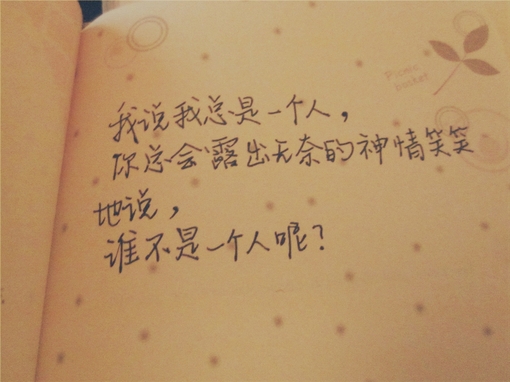 我说我总是一个人，
你总会露出无奈的神情笑笑
地说，
谁不是一个人呢？
Picnic
bucket